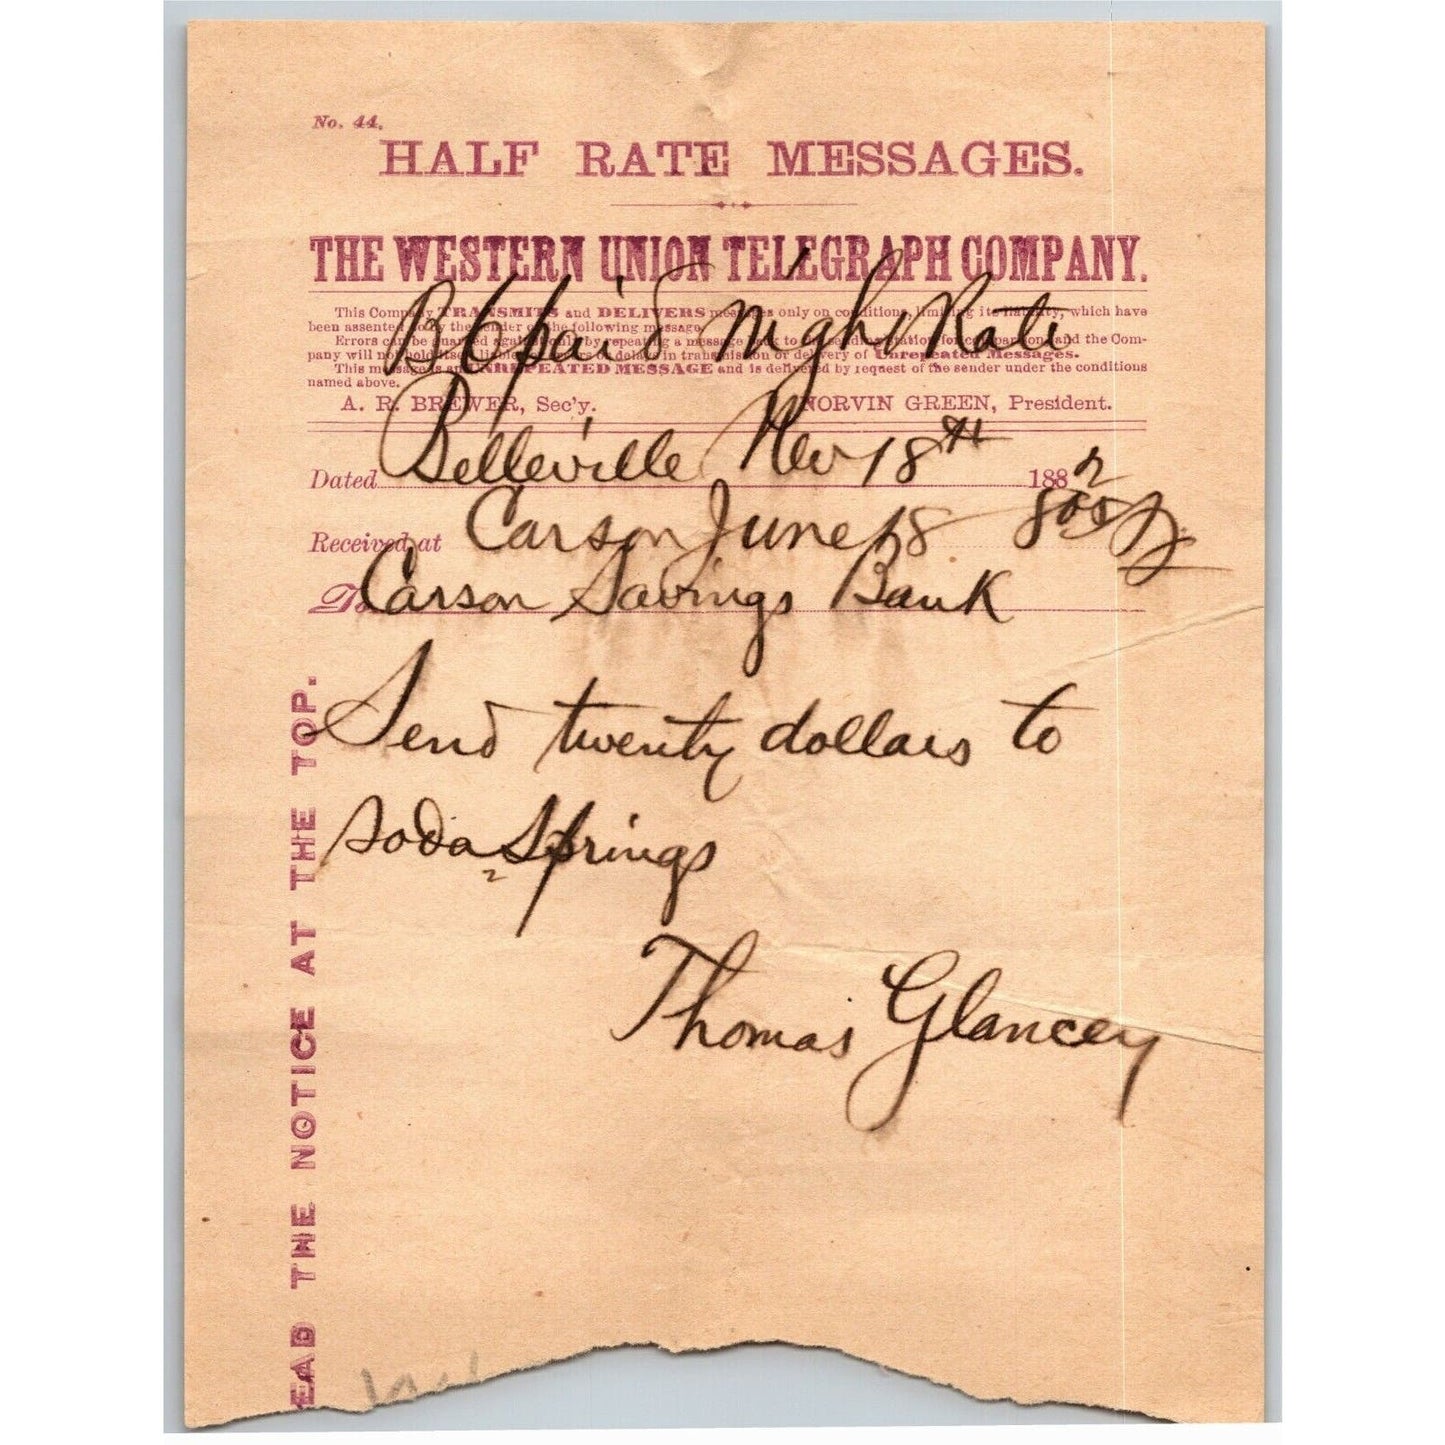 No. 44.
HALF RATE MESSAGES.
THE WESTERN UNION TELEGRAPH COMPANY.
This Company TRANSMITS and DELIVERS messages only on conditions, limiting its liability, which have
been assented to by the sender of the following message.
Errors can be guarded against only by repeating a message back to the sending station for comparison, and the Com-
pany will not hold itself liable for errors or delays in transmission or delivery of Unrepeated Messages.
This message is an UNREPEATED MESSAGE and is delivered by request of the sender under the conditions
named above.
A. R. BREWER, Sec'y. NORVIN GREEN, President.
paid Night Rate
Dated Belleville Nov 18th 1882
Received at Carson June 18
To Carson Savings Bank
Send twenty dollars to
Soda Springs
Thomas Glancey
EAD THE NOTICE AT THE TOP.